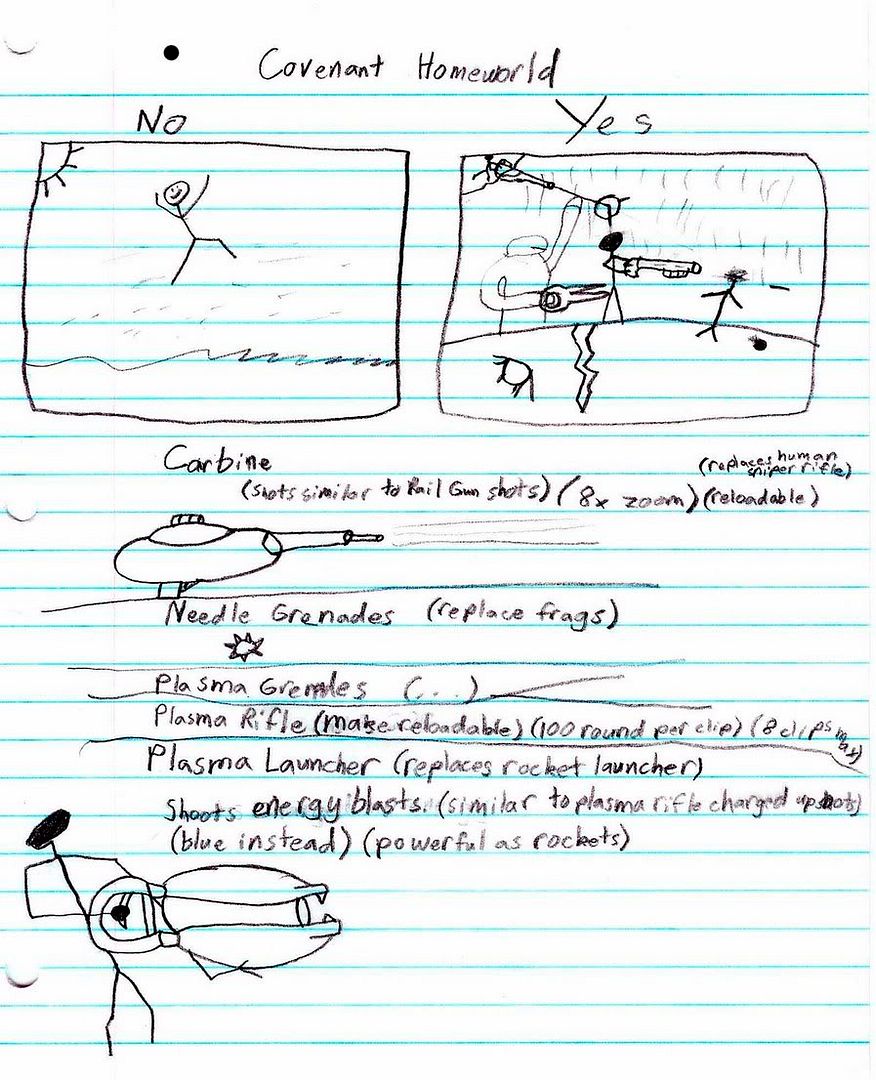 Covenant Homeworld
No
Yes
Carbine
(replaces human sniper rifle)
(shots similar to Rail Gun shots) (8x zoom) (reloadable)
Needle Grenades (replace frags)
Plasma Grendes (...)
Plasma Rifle (make reloadable) (100 round per clip) (8 clips max)
Plasma Launcher (replaces rocket launcher)
Shoots energy blasts. (similar to plasma rifle charged up shots)
(blue instead) (powerful as rockets)